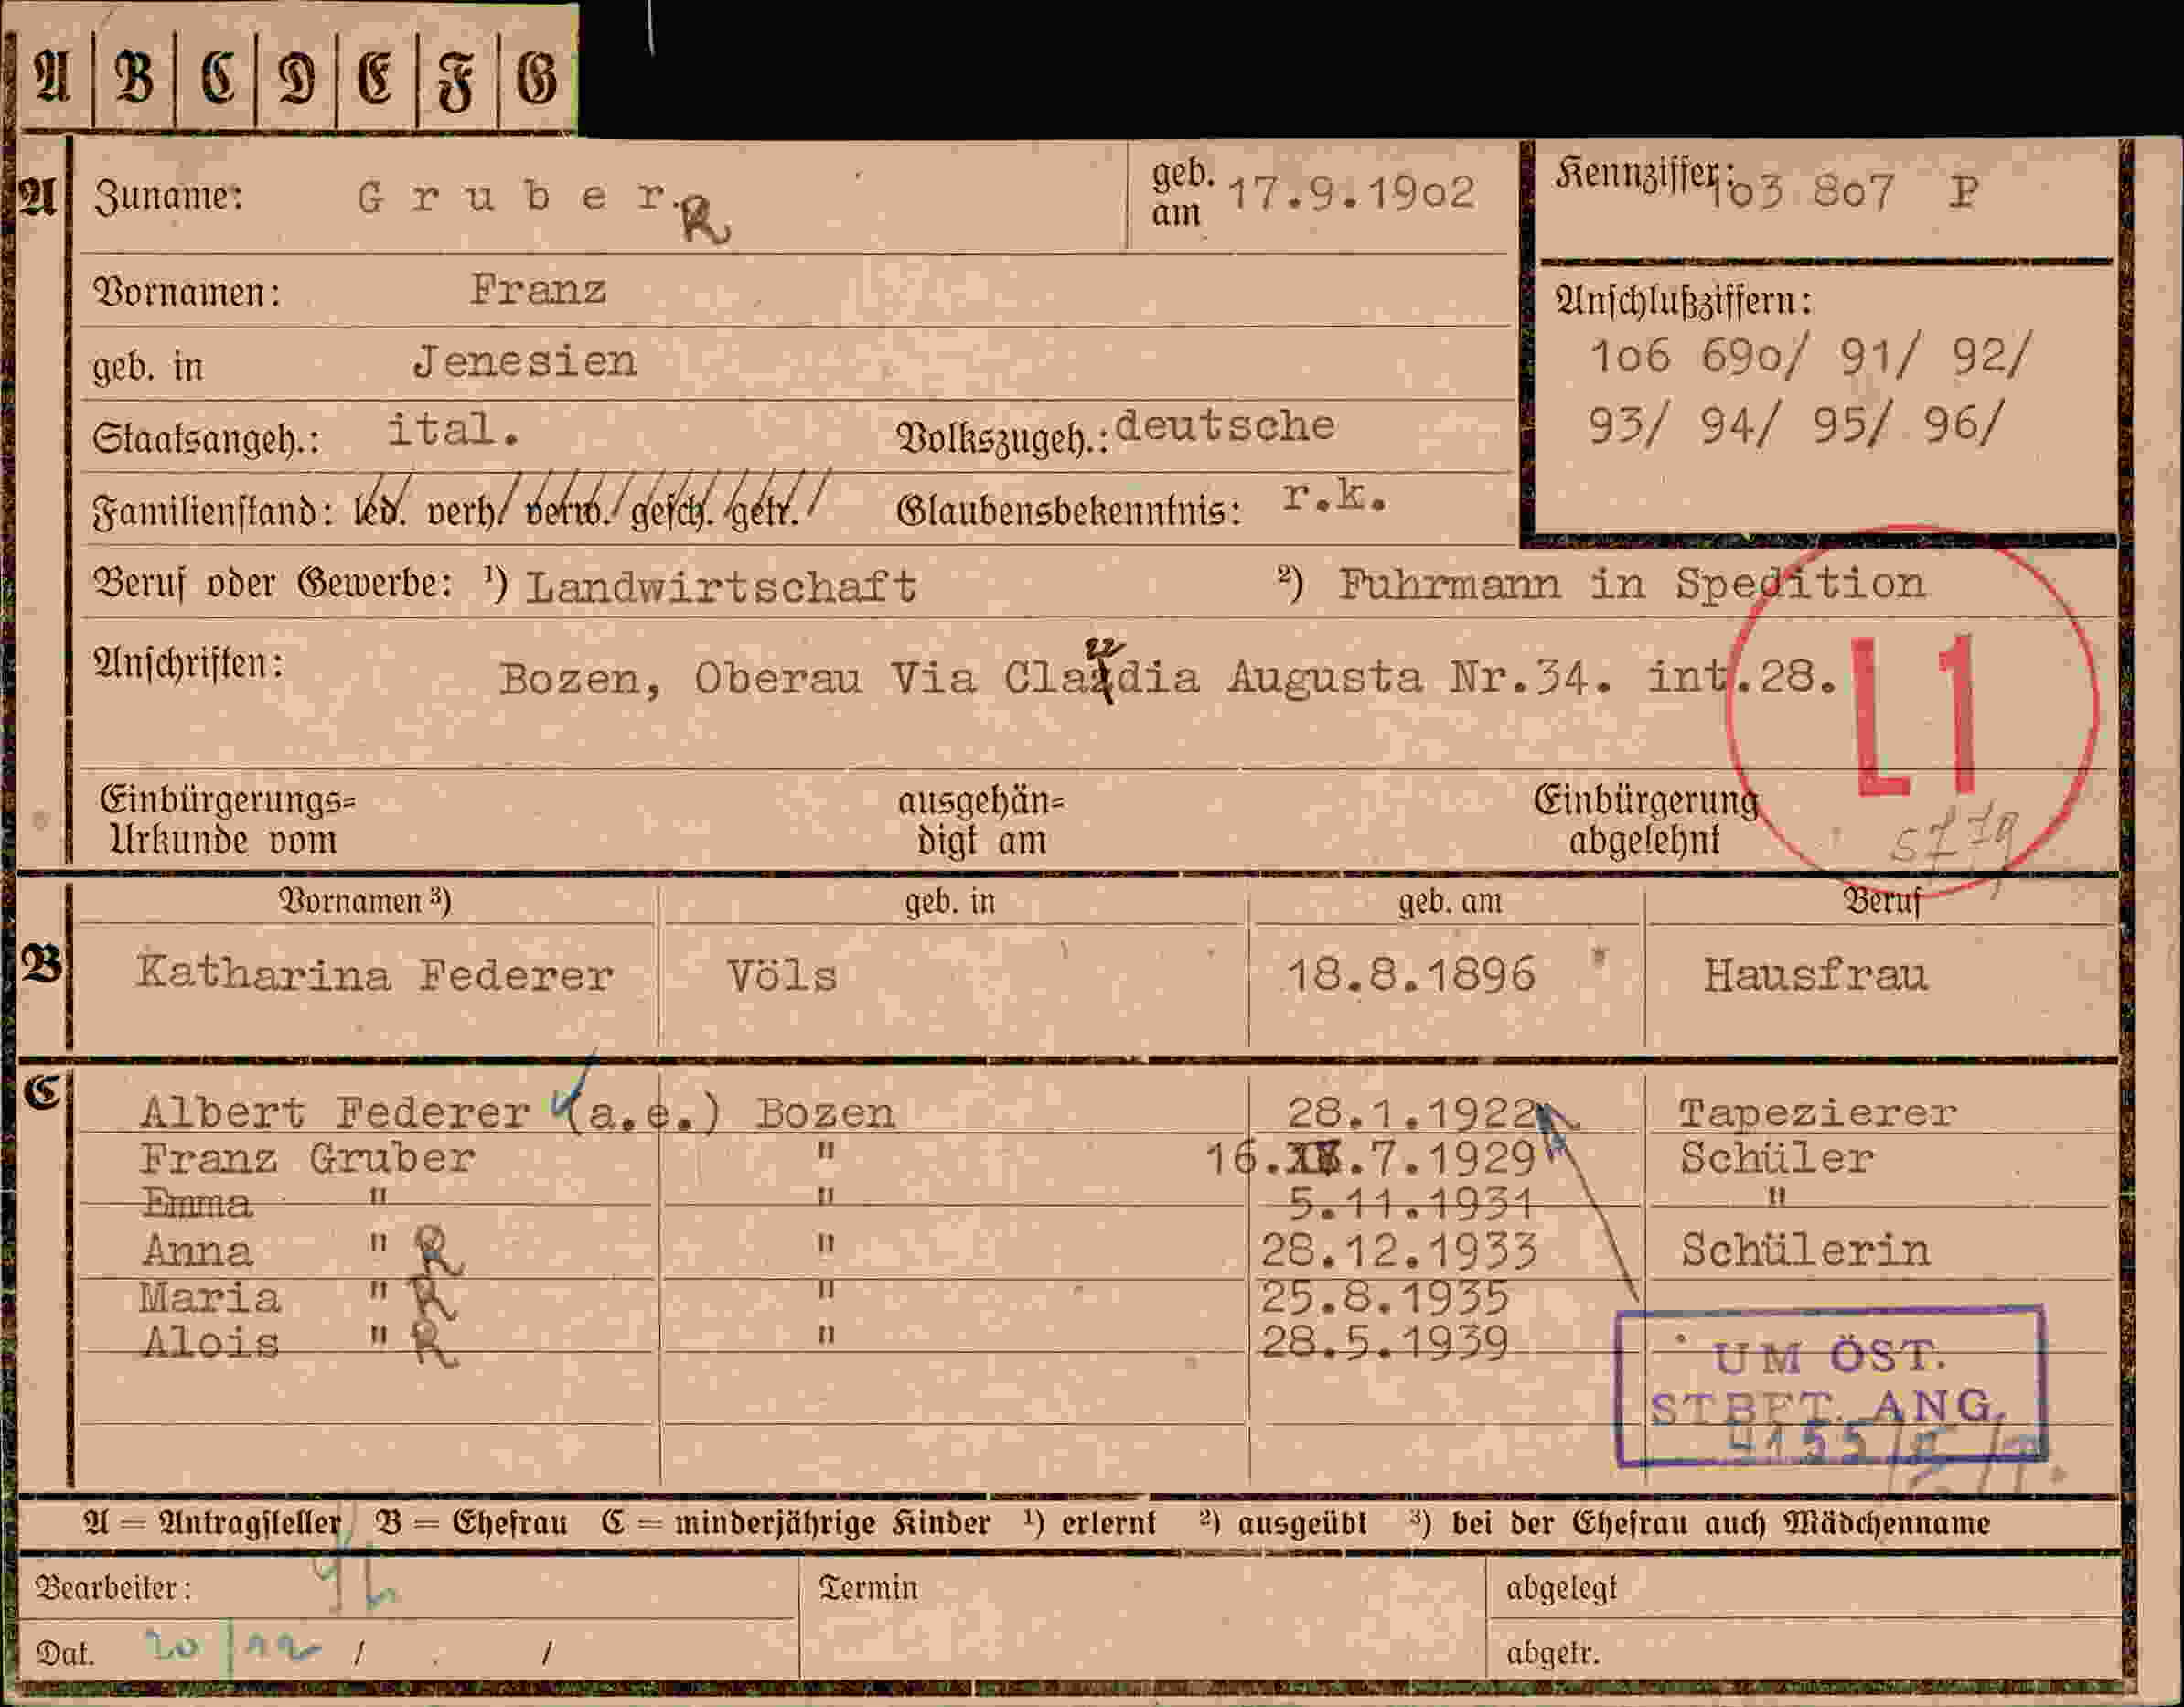 A B C D E F G
A Zuname: Gruber. R geb. am 17.9.1902 Kennziffer: 103 807 P
Vornamen: Franz
Anschlußziffern:
geb. in Jenesien 106 690/ 91/ 92/
Staatsangeh.: ital. Volkszugeh.: deutsche 93/ 94/ 95/ 96/
Familienstand: led. verh/ verw. gesch. getr. Glaubensbekenntnis: r.k.
Beruf oder Gewerbe: ¹) Landwirtschaft ²) Fuhrmann in Spedition
Anschriften: Bozen, Oberau Via Claudia Augusta Nr.34. int.28. L1
Einbürgerungs= ausgehän= Einbürgerung
Urkunde vom digt am abgelehnt
Vornamen ³) geb. in geb. am Beruf
B Katharina Federer Völs 18.8.1896 Hausfrau
C Albert Federer (a.e.) Bozen 28.1.1922 Tapezierer
Franz Gruber " 16.7.1929 Schüler
Emma " " 5.11.1931 "
Anna " R " 28.12.1933 Schülerin
Maria " R " 25.8.1935
Alois " R " 28.5.1939
UM ÖST.
STBFT. ANG.
A = Antragsteller B = Ehefrau C = minderjährige Kinder ¹) erlernt ²) ausgeübt ³) bei der Ehefrau auch Mädchenname
Bearbeiter: Termin abgelegt
Dat. 20/12 / / abgetr.